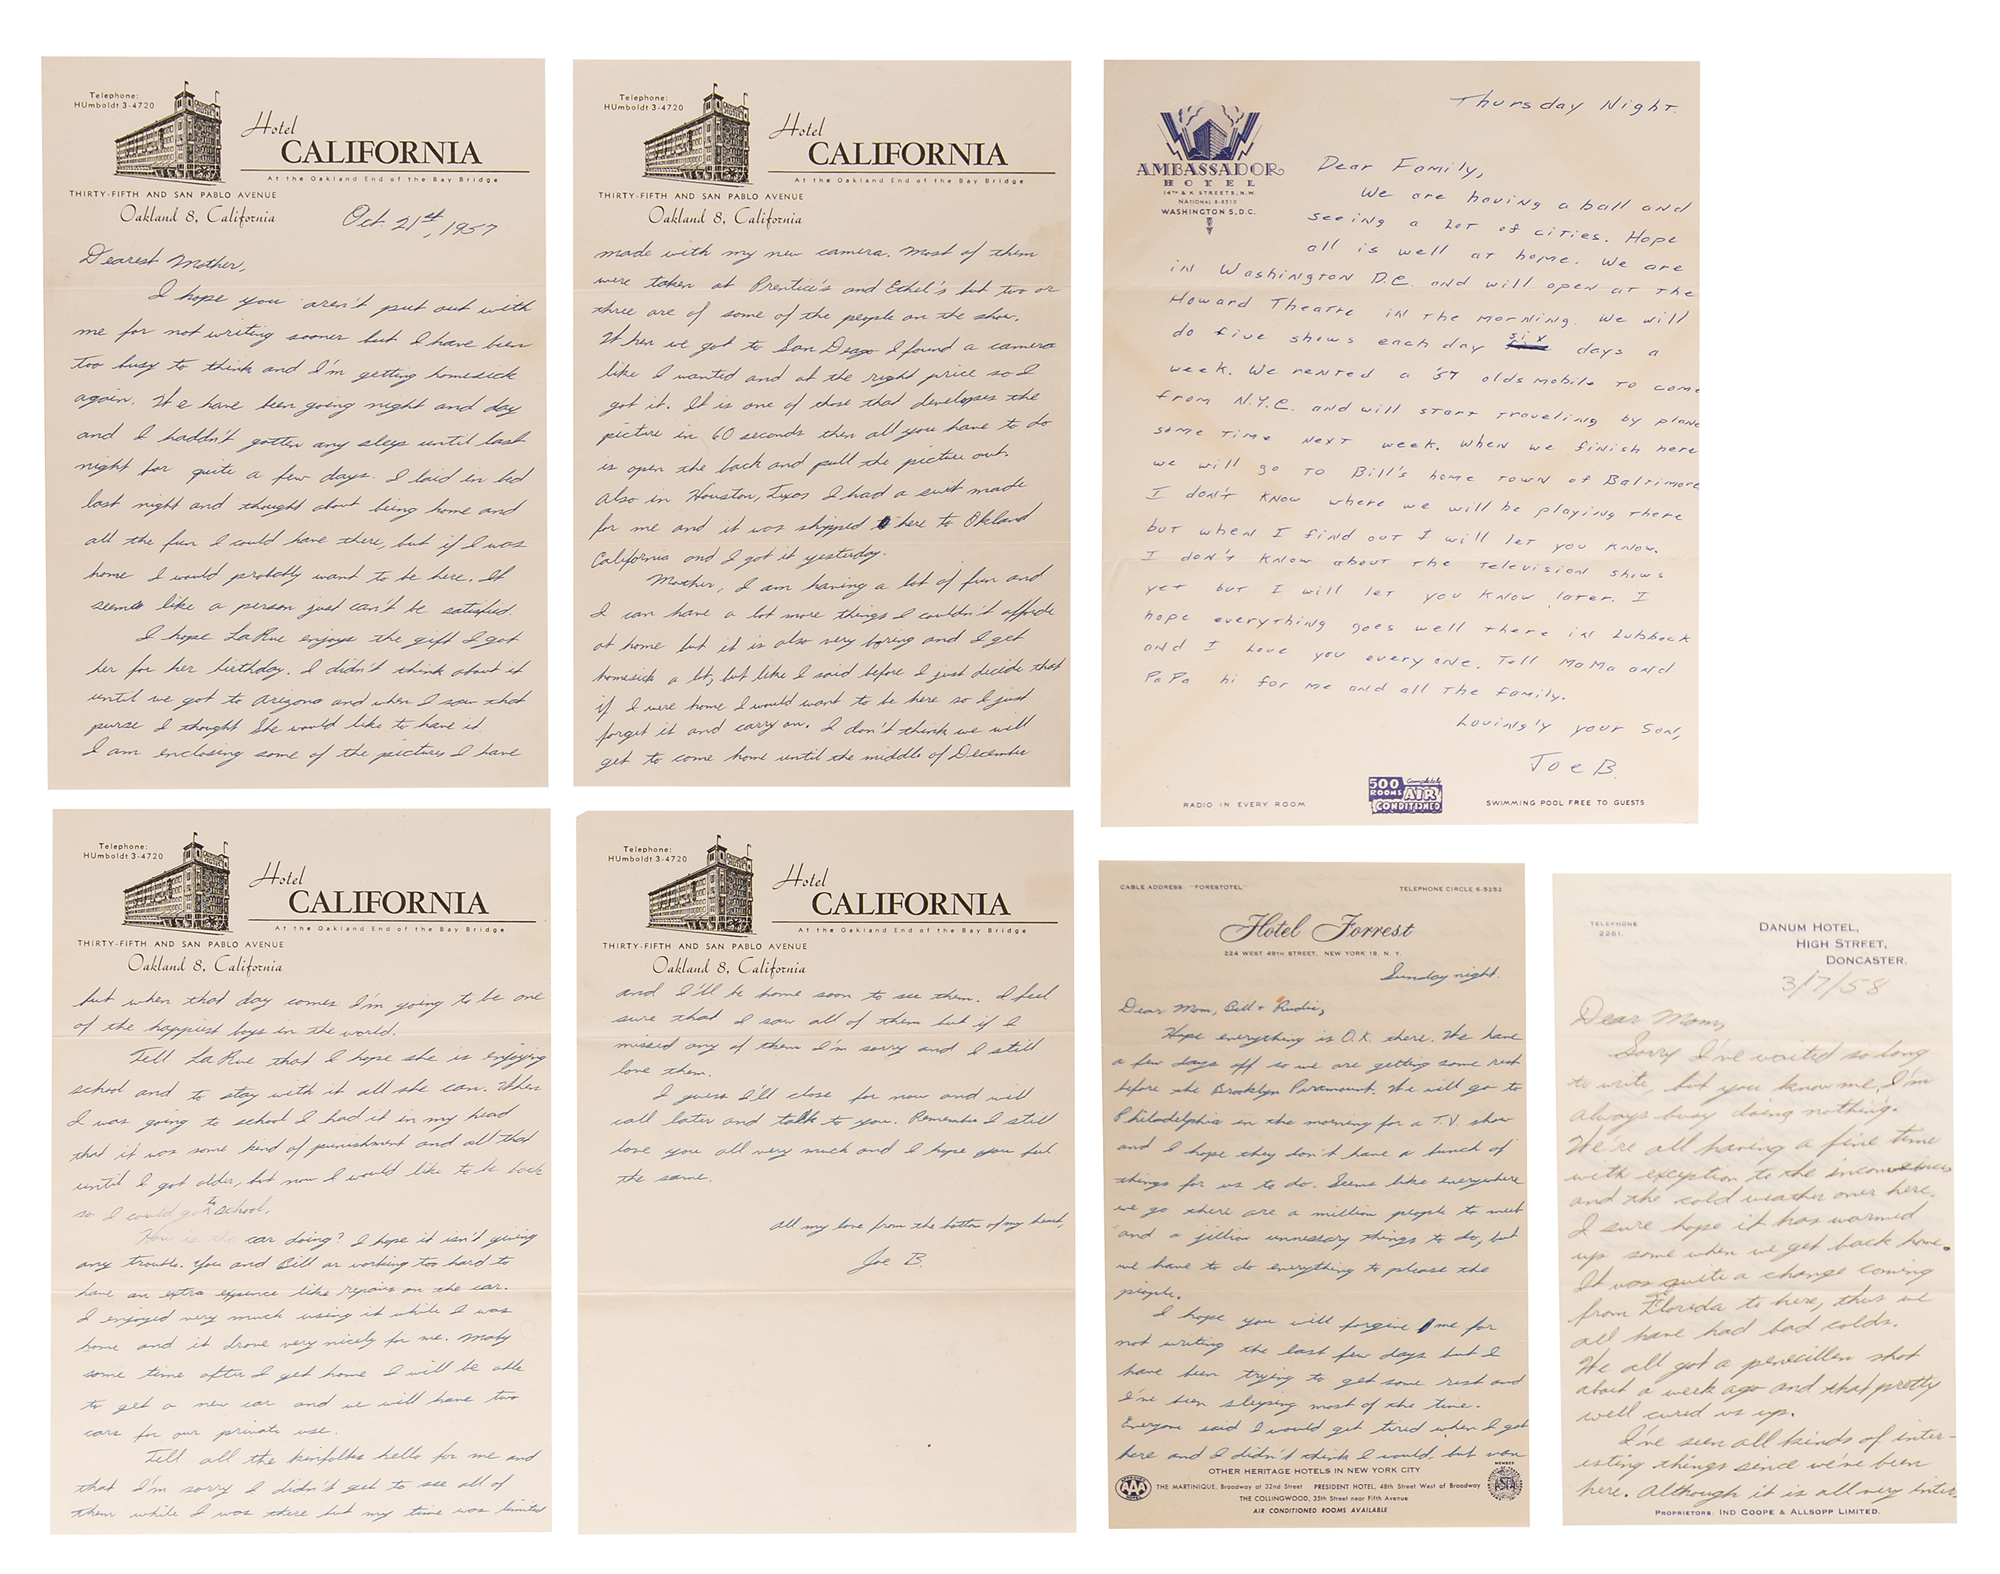 Telephone:
HUmboldt 3-4720
Hotel
CALIFORNIA
At the Oakland End of the Bay Bridge
THIRTY-FIFTH AND SAN PABLO AVENUE
Oakland 8, California
Oct. 21st, 1957
Dearest Mother,
I hope you aren't put out with
me for not writing sooner but I have been
too busy to think and I'm getting homesick
again. We have been going night and day
and I haddn't gotten any sleep until last
night for quite a few days. I laid in bed
last night and thought about being home and
all the fun I could have there, but if I was
home I would probably want to be here. It
seems like a person just can't be satisfied.
I hope LaRue enjoys the gift I got
her for her birthday. I didn't think about it
until we got to Arizona and when I saw that
purse I thought she would like to have it.
I am enclosing some of the pictures I have
Telephone:
HUmboldt 3-4720
Hotel
CALIFORNIA
At the Oakland End of the Bay Bridge
THIRTY-FIFTH AND SAN PABLO AVENUE
Oakland 8, California
made with my new camera. Most of them
were taken at Prentice's and Ethel's but two or
three are of some of the people on the show.
When we got to San Deago I found a camera
like I wanted and at the right price so I
got it. It is one of those that developes the
picture in 60 seconds then all you have to do
is open the back and pull the picture out.
Also in Houston, Texas I had a suit made
for me and it was shipped here to Okland
California and I got it yesterday.
Mother, I am having a lot of fun and
I can have a lot more things I couldn't afforde
at home but it is also very boring and I get
homesick a lot, but like I said before I just decide that
if I were home I would want to be here so I just
forget it and carry on. I don't think we will
get to come home until the middle of December
Thursday Night.
AMBASSADOR
HOTEL
14TH & K STREETS, N.W.
NATIONAL 8-8510
WASHINGTON 5, D.C.
Dear Family,
We are having a ball and
seeing a lot of cities. Hope
all is well at home. We are
in Washington D.C. and will open at the
Howard Theatre in the morning. We will
do five shows each day six days a
week. We rented a '57 oldsmobile to come
from N.Y.C. and will start traveling by plane
some time next week. When we finish here
we will go to Bill's home town of Baltimore
I don't know where we will be playing there
but when I find out I will let you know.
I don't know about the television shows
yet but I will let you know later. I
hope everything goes well there in Lubbock
and I Love you everyone. Tell MaMa and
PaPa hi for me and all the family.
Lovingly your Son,
Joe B.
RADIO IN EVERY ROOM
500 ROOMS Completely AIR CONDITIONED
SWIMMING POOL FREE TO GUESTS
Telephone:
HUmboldt 3-4720
Hotel
CALIFORNIA
At the Oakland End of the Bay Bridge
THIRTY-FIFTH AND SAN PABLO AVENUE
Oakland 8, California
but when that day comes I'm going to be one
of the happiest boys in the world.
Tell LaRue that I hope she is enjoying
school and to stay with it all she can. When
I was going to school I had it in my head
that it was some kind of punishment and all that
until I got older, but now I would like to be back
so I could go to school.
How is the car doing? I hope it isn't giving
any trouble. You and Bill ar working too hard to
have an extra expence like repairs on the car.
I enjoyed very much using it while I was
home and it drove very nicely for me. Maby
some time after I get home I will be able
to get a new car and we will have two
cars for our private use.
Tell all the kinfolks hello for me and
that I'm sorry I didn't get to see all of
them while I was there but my time was limited
Telephone:
HUmboldt 3-4720
Hotel
CALIFORNIA
At the Oakland End of the Bay Bridge
THIRTY-FIFTH AND SAN PABLO AVENUE
Oakland 8, California
and I'll be home soon to see them. I feel
sure that I saw all of them but if I
missed any of them I'm sorry and I still
love them.
I guess I'll close for now and will
call later and talk to you. Remember I still
love you all very much and I hope you feel
the same.
All my love from the bottom of my heart,
Joe B.
CABLE ADDRESS: "FORESTOTEL"
TELEPHONE CIRCLE 6-5252
Hotel Forrest
224 WEST 49TH STREET, NEW YORK 19, N. Y.
Sunday night.
Dear Mom, Bill + Rudie,
Hope everything is O.K. there. We have
a few days off so we are getting some rest
before the Brooklyn Paramount. We will go to
Philadelphia in the morning for a T.V. show
and I hope they don't have a bunch of
things for us to do. Seems like everywhere
we go there are a million people to meet
and a jillion unnessary things to do, but
we have to do everything to please the
people.
I hope you will forgive me for
not writing the last few days but I
have been trying to get some rest and
I've been sleeping most of the time.
Everyone said I would get tired when I got
here and I didn't think I would, but
OTHER HERITAGE HOTELS IN NEW YORK CITY
APPROVED AAA HOTEL
THE MARTINIQUE, Broadway at 32nd Street PRESIDENT HOTEL, 48th Street West of Broadway
THE COLLINGWOOD, 35th Street near Fifth Avenue
AIR CONDITIONED ROOMS AVAILABLE
MEMBER
TELEPHONE
2261.
DANUM HOTEL,
HIGH STREET,
DONCASTER.
3/7/58
Dear Mom,
Sorry I've waited so long
to write, but you know me, I'm
always busy doing nothing.
We're all having a fine time
with exception to the
and the cold weather over here.
I sure hope it has warmed
up some when we get back home.
It was quite a change coming
from Florida to here, thus we
all have had bad colds.
We all got a penecillen shot
about a week ago and that pretty
well cured us up.
I've seen all kinds of inter-
esting things since we've been
here. Although it is all very inter-
PROPRIETORS: IND COOPE & ALLSOPP LIMITED.